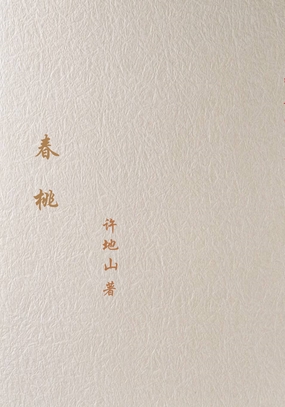 春桃
许地山著